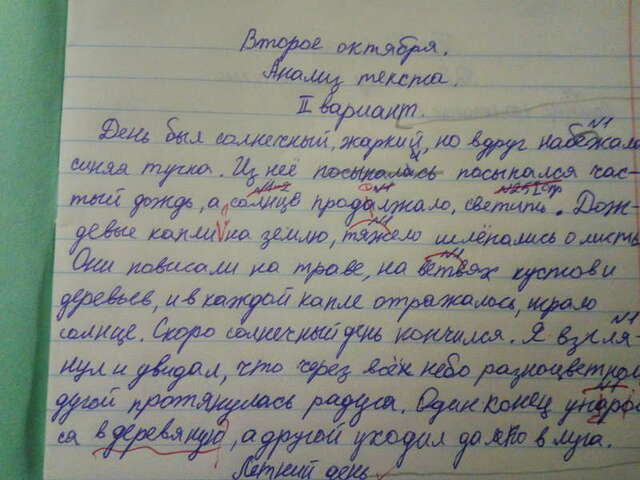 Второе октября.
Анализ текста.
II вариант.
День был солнечный, жаркий, но вдруг набежала
синяя тучка. Из неё посыпались посыпался час-
тый дождь, а солнце продалжало, светить. Дож-
девые капли на землю, тяжело шлёпались о листь
Они повисали на траве, на ветвях кустов и
деревьев, и в каждой капле отражалось, играло
солнце. Скоро солнечный день кончился. Я взгля-
нул и двидал, что через всё небо разноцветной
дугой протянулась радуга. Один конец
ся в деревяную, а другой уходил далеко в луга.
Летний день